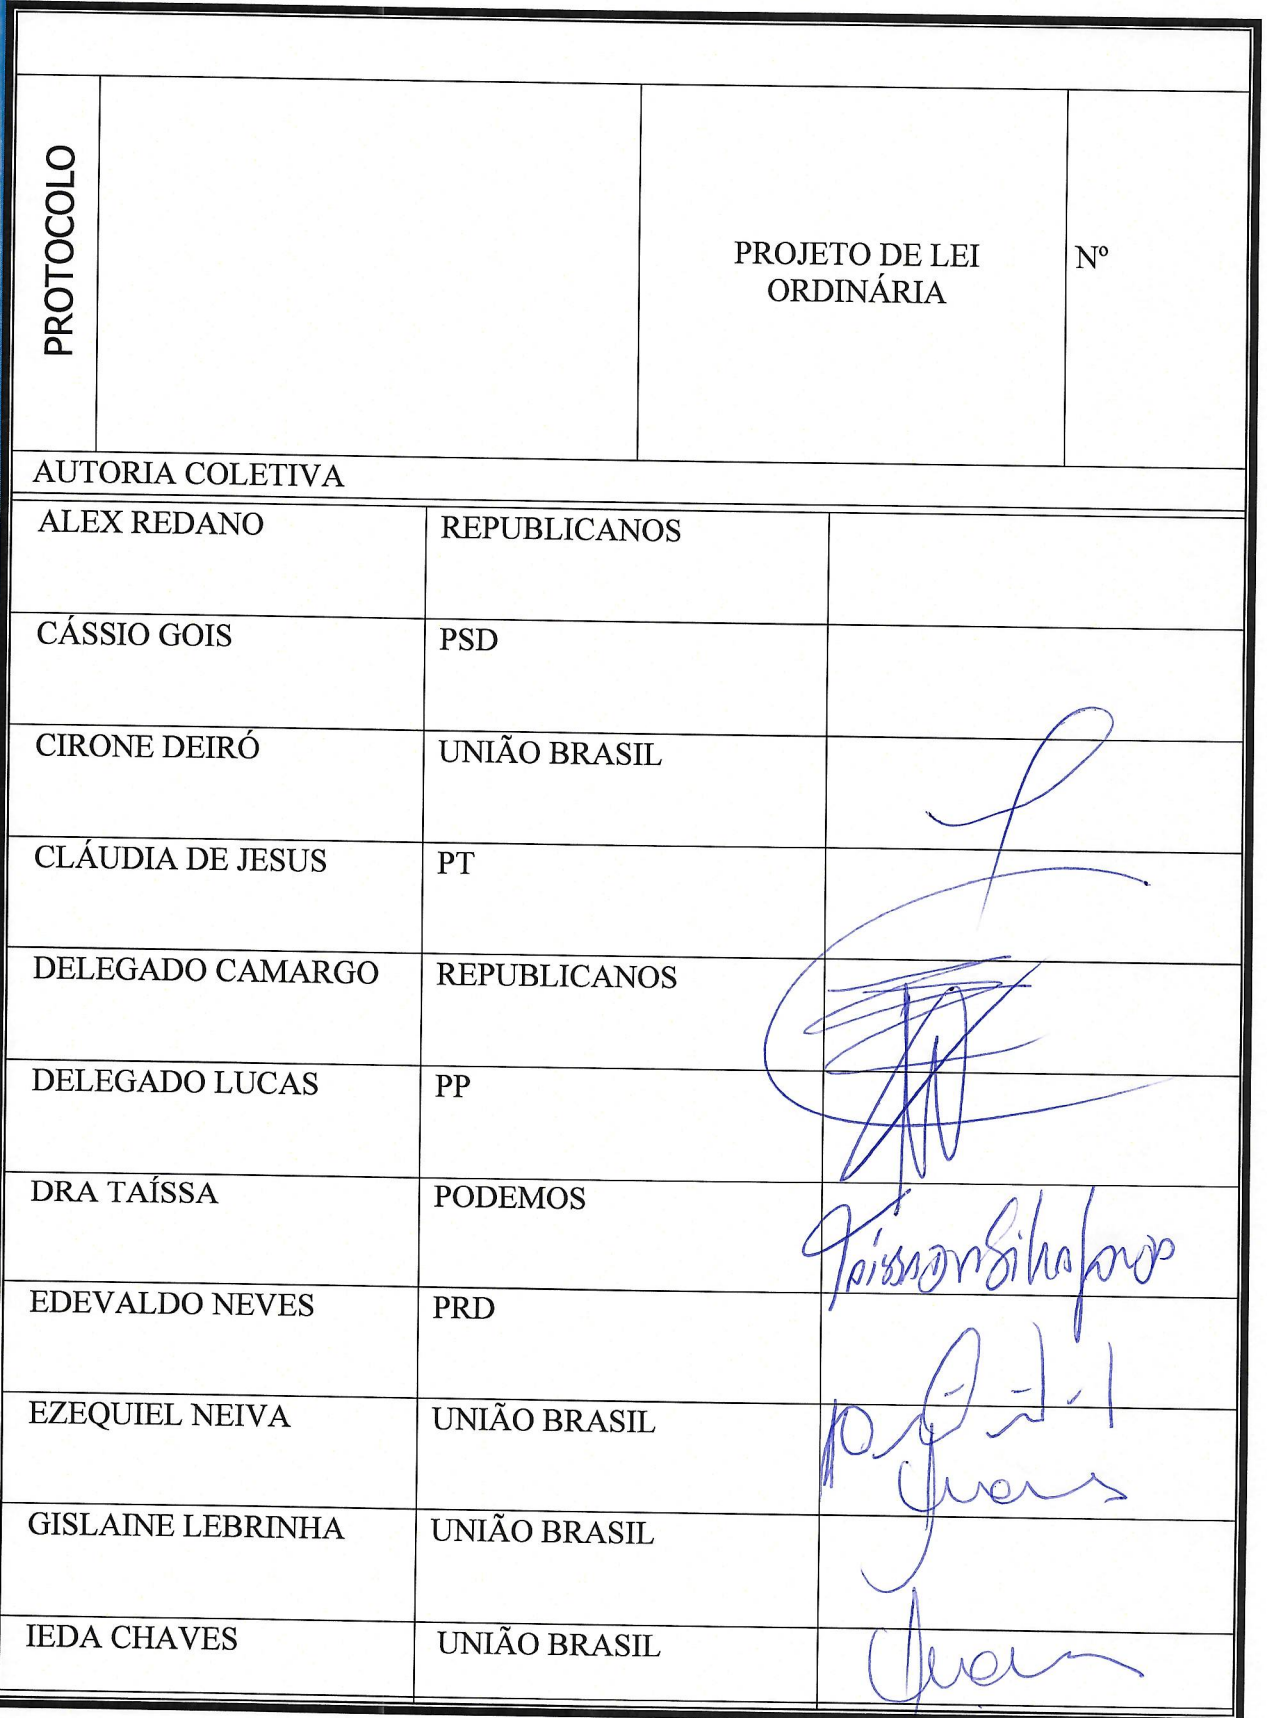 PROTOCOLO
PROJETO DE LEI
ORDINÁRIA
Nº
AUTORIA COLETIVA
ALEX REDANO REPUBLICANOS
CÁSSIO GOIS PSD
CIRONE DEIRÓ UNIÃO BRASIL
CLÁUDIA DE JESUS PT
DELEGADO CAMARGO REPUBLICANOS
DELEGADO LUCAS PP
DRA TAÍSSA PODEMOS
EDEVALDO NEVES PRD
EZEQUIEL NEIVA UNIÃO BRASIL
GISLAINE LEBRINHA UNIÃO BRASIL
IEDA CHAVES UNIÃO BRASIL